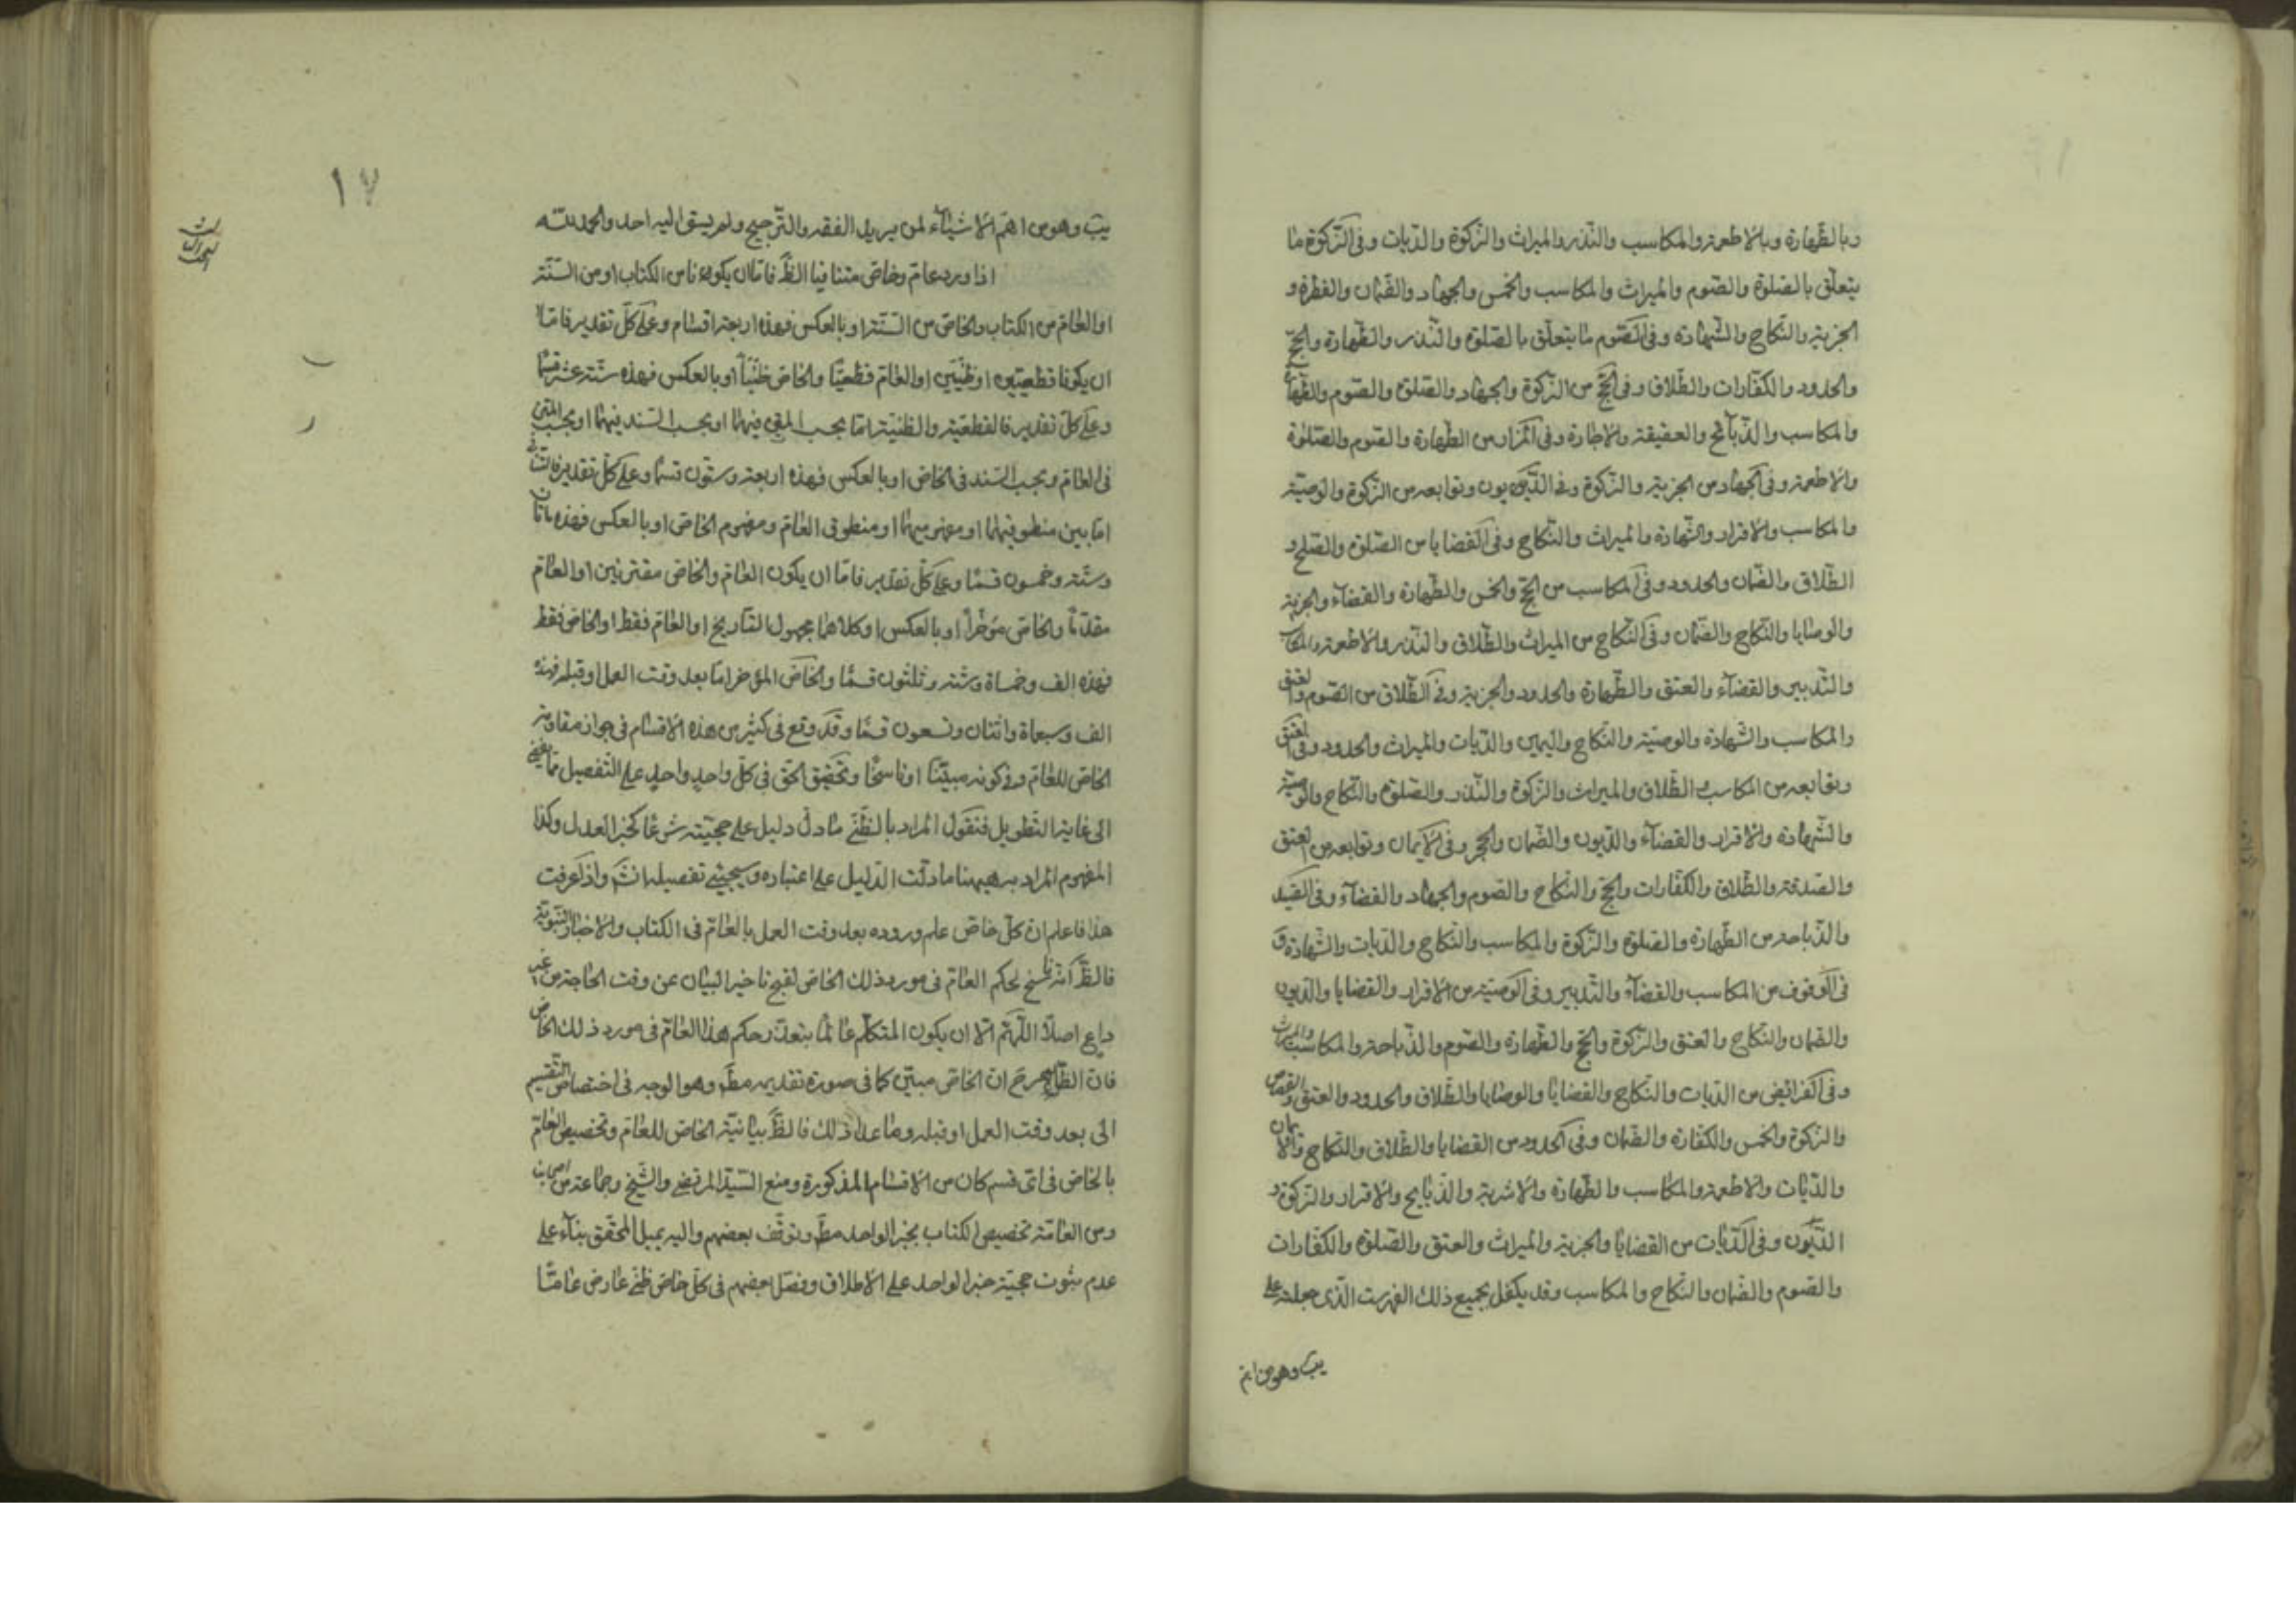 وبالطهارة وبالاطعمة والمكاسب والنذر والميراث والزكوة والديات وفى الزكوة ما
يتعلق بالصلوة والصوم والميراث والمكاسب والخمس والجهاد والضمان والفطرة و
الجزية والنكاح والشهادة وفى الصوم ما يتعلق بالصلوة والنذر والطهارة والحج
والحدود والكفارات والطلاق وفى الحج من الزكوة والجهاد والصلوة والصوم والطهارة
والمكاسب والذبائح والعقيقة والاجارة وفى المزار من الطهارة والصوم والصلوة
والاطعمة وفى الجهاد من الجزية والزكوة وفى الديون وتوابعه من الزكوة والوصية
والمكاسب والاقرار والشهادة والميراث والنكاح وفى القضايا من الصلوة والصلح و
الطلاق والضمان والحدود وفى المكاسب من الحج والخمس والطهارة والقضاء والجزية
والوصايا والنكاح والضمان وفى النكاح من الميراث والطلاق والنذر والاطعمة والمكاسب
والتدبير والقضاء والعتق والطهارة والحدود والجزية وفى الطلاق من الصوم والعتق
والمكاسب والشهادة والوصية والنكاح واليمين والديات والميراث والحدود وفى العتق
وتوابعه من المكاسب والطلاق والميراث والزكوة والنذر والصلوة والنكاح والوصية
والشهادة والاقرار والقضاء والديون والضمان والحجر وفى الايمان وتوابعه من العتق
والصدقة والطلاق والكفارات والحج والنكاح والصوم والجهاد والقضاء وفى الصيد
والذباحة من الطهارة والصلوة والزكوة والمكاسب والنكاح والديات والشهادة و
فى الوقوف من المكاسب والقضاء والتدبير وفى الوصية من الاقرار والقضايا والديون
والضمان والنكاح والعتق والزكوة والحج والطهارة والصوم والذباحة والمكاسب والميراث
وفى الفرائض من الديات والنكاح والقضايا والوصايا والطلاق والحدود والعتق والقصاص
والزكوة والخمس والكفارة والضمان وفى الحدود من القضايا والطلاق والنكاح والايمان
والديات والاطعمة والمكاسب والطهارة والاشربة والذبايح والاقرار والزكوة و
الديون وفى الديات من القضايا والجزية والميراث والعتق والصلوة والكفارات
والصوم والضمان والنكاح والمكاسب وقد يكفل بجميع ذلك الفهرست الذى جعلته على
يب وهو من اهم
١٧
يب وهو من اهم الاشياء لمن يريد الفقه والترجيح ولم يسبق اليه احد والحمد لله
اذا ورد عام وخاص متنافيا الظ فاما ان يكونا من الكتاب او من السنة
او العام من الكتاب والخاص من السنة او بالعكس فهذه اربعة اقسام وعلى كل تقدير فاما
ان يكونا قطعيين او ظنيين او العام قطعيا والخاص ظنيا او بالعكس فهذه ستة عشر قسما
وعلى كل تقدير فالقطعية والظنية اما بحسب المتن فيهما او بحسب السند فيهما او بحسب المتن
فى العام وبحسب السند فى الخاص او بالعكس فهذه اربعة وستون قسما وعلى كل تقدير فالتنافى
اما بين منطوقيهما او مفهوميهما او منطوق العام ومفهوم الخاص او بالعكس فهذه ماتان
وستة وخمسون قسما وعلى كل تقدير فاما ان يكون العام والخاص مقترنين او العام
مقدما والخاص مؤخرا او بالعكس او كلاهما مجهول التاريخ او العام فقط او الخاص فقط
فهذه الف وخمسماة وستة وثلثون قسما والخاص المؤخر اما بعد وقت العمل او قبله فهذه
الف وسبعماة واثنان وتسعون قسما وقد وقع فى كثير من هذه الاقسام فى جواز مقاومة
الخاص للعام وفى كونه مبينا او ناسخا وتحقيق الحق فى كل واحد واحد على التفصيل مما يفضى
الى غاية التطويل فنقول المراد بالظنى ما دل دليل على حجيته شرعا كخبر العدل وكذا
المفهوم المراد به هيهنا ما دلت الدليل على اعتباره وسيجيئ تفصيله انش واذا عرفت
هذا فاعلم ان كل خاص علم وروده بعد وقت العمل بالعام فى الكتاب والاخبار النبوية
فالظ انه ناسخ لحكم العام فى مورد ذلك الخاص لقبح تاخير البيان عن وقت الحاجة من غير
داع اصلا اللهم الا ان يكون المتكلم عالما بتعذر حكم هذا العام فى مورد ذلك الخاص
فان الظاهر ح ان الخاص مبين كما فى صورة تقديمه مط وهو الوجه فى اختصاص التقسيم
الى بعد وقت العمل او قبله وما عدا ذلك فالظ بيانية الخاص للعام وتخصيص العام
بالخاص فى اى قسم كان من الاقسام المذكورة ومنع السيد المرتضى والشيخ وجماعة من اصحابنا
ومن العامة تخصيص الكتاب بخبر الواحد مط وتوقف بعضهم واليه يميل المحقق بناء على
عدم ثبوت حجية خبر الواحد على الاطلاق وفصل بعضهم فى كل خاص ظنى عارض عاما